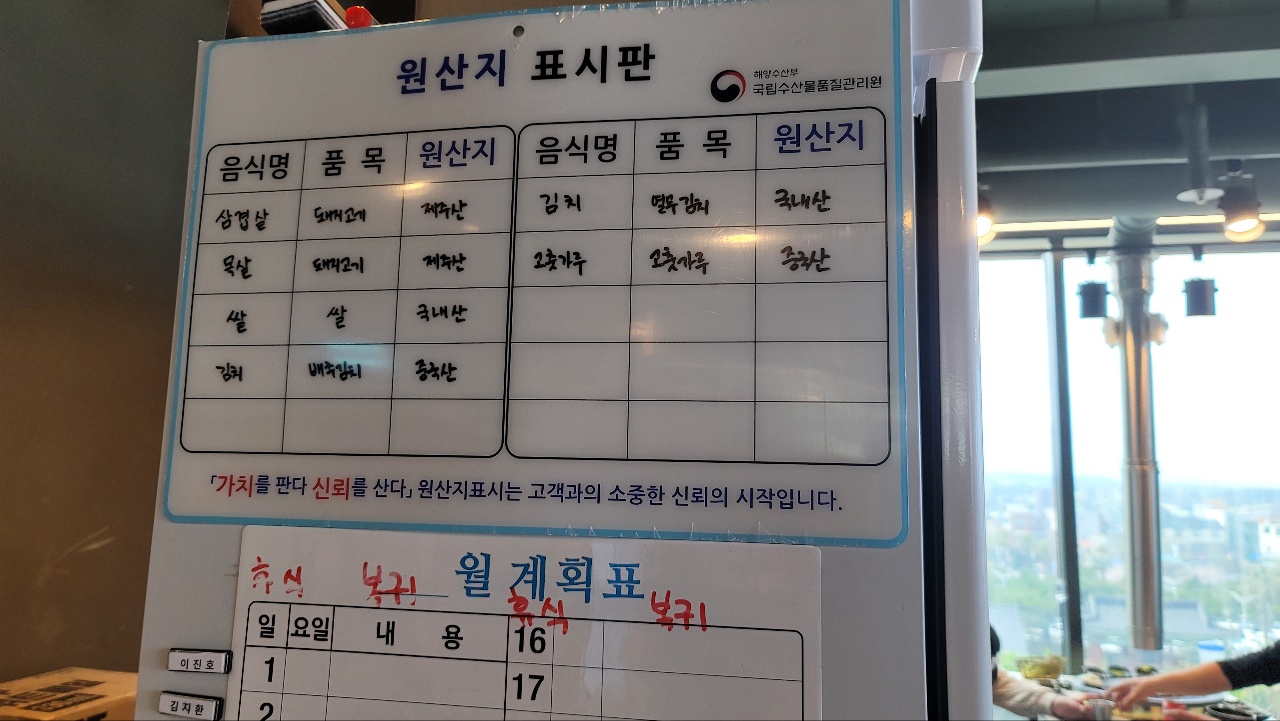 원산지 표시판
해양수산부
국립수산물품질관리원
음식명 품 목 원산지
삼겹살 돼지고기 제주산
목살 돼지고기 제주산
쌀 쌀 국내산
김치 배추김치 중국산
음식명 품 목 원산지
김치 열무김치 국내산
고춧가루 고춧가루 중국산
「가치를 판다 신뢰를 산다」 원산지표시는 고객과의 소중한 신뢰의 시작입니다.
월 계획표
휴식 복귀 휴식 복귀
일 요일 내 용 16
1 17
2
이진호
김지환